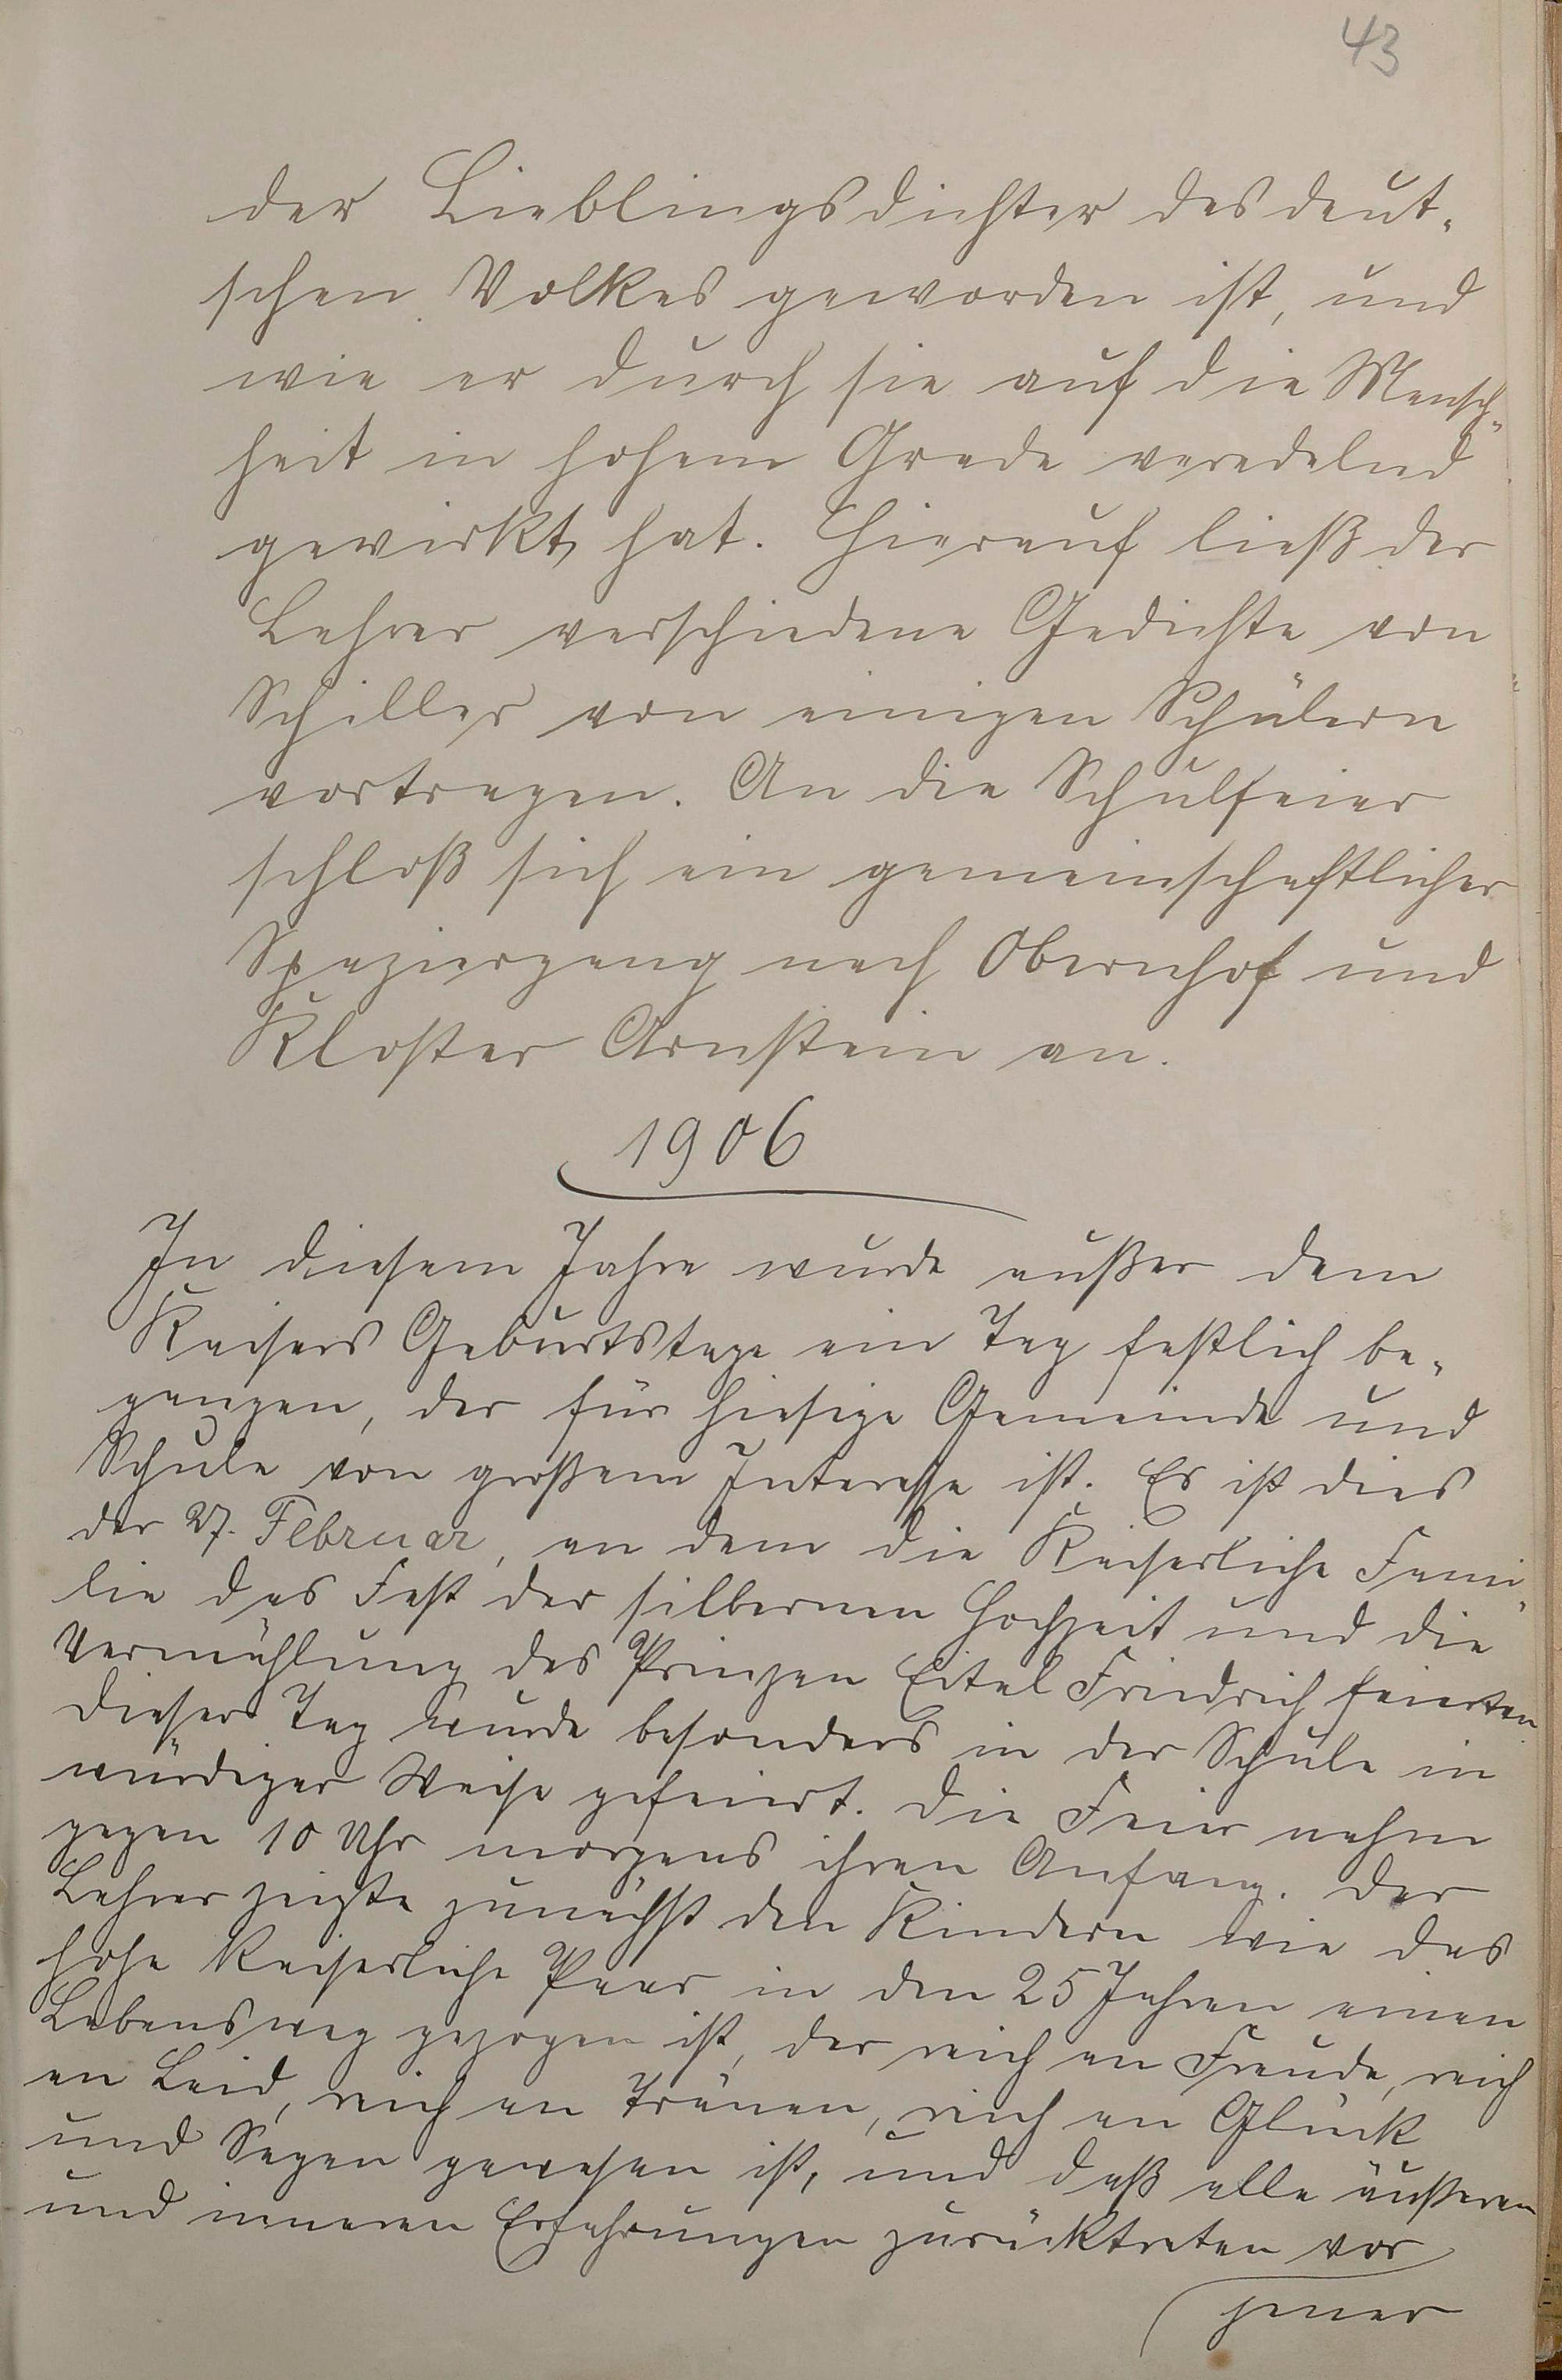 43
der Lieblingsdichter des deut-
schen Volkes geworden ist, und
wie er durch sie auf die Mensch-
heit in hohem Grade veredelnd
gewirkt hat. Hierauf ließ der
Lehrer verschiedene Gedichte von
Schiller von einigen Schülern
vortragen. An die Schulfeier
schloß sich ein gemeinschaftlicher
Spaziergang nach Obernhof und
Kloster Arnstein an.
1906
In diesem Jahre wurde außer dem
Kaisers Geburtstage ein Tag festlich be-
gangen, der für hiesige Gemeinde und
Schule von großem Interesse ist. Es ist dies
der 27. Februar, an dem die Kaiserliche Fami-
lie das Fest der silbernen Hochzeit und die
Vermählung des Prinzen Eitel Friedrich feierten
Dieser Tag wurde besonders in der Schule in
würdiger Weise gefeiert. Die Feier nahm
gegen 10 Uhr morgens ihren Anfang. Der
Lehrer zeigte zunächst den Kindern wie das
hohe Kaiserliche Paar in den 25 Jahren einen
Lebensweg gezogen ist, der reich an Freude, reich
an Leid, reich an Tränen, reich an Glück
und Segen gewesen ist, und daß alle äußeren
und inneren Erfahrungen zurücktreten vor
jener